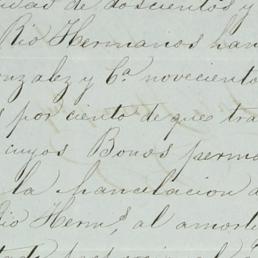 dad de doscientos y
Rio Hermanos han
onzalez y Cª noveciento
s por ciento de que tra
cuyos Bonos perma
la chancelacion d
Rio Hermˢ, al amorti